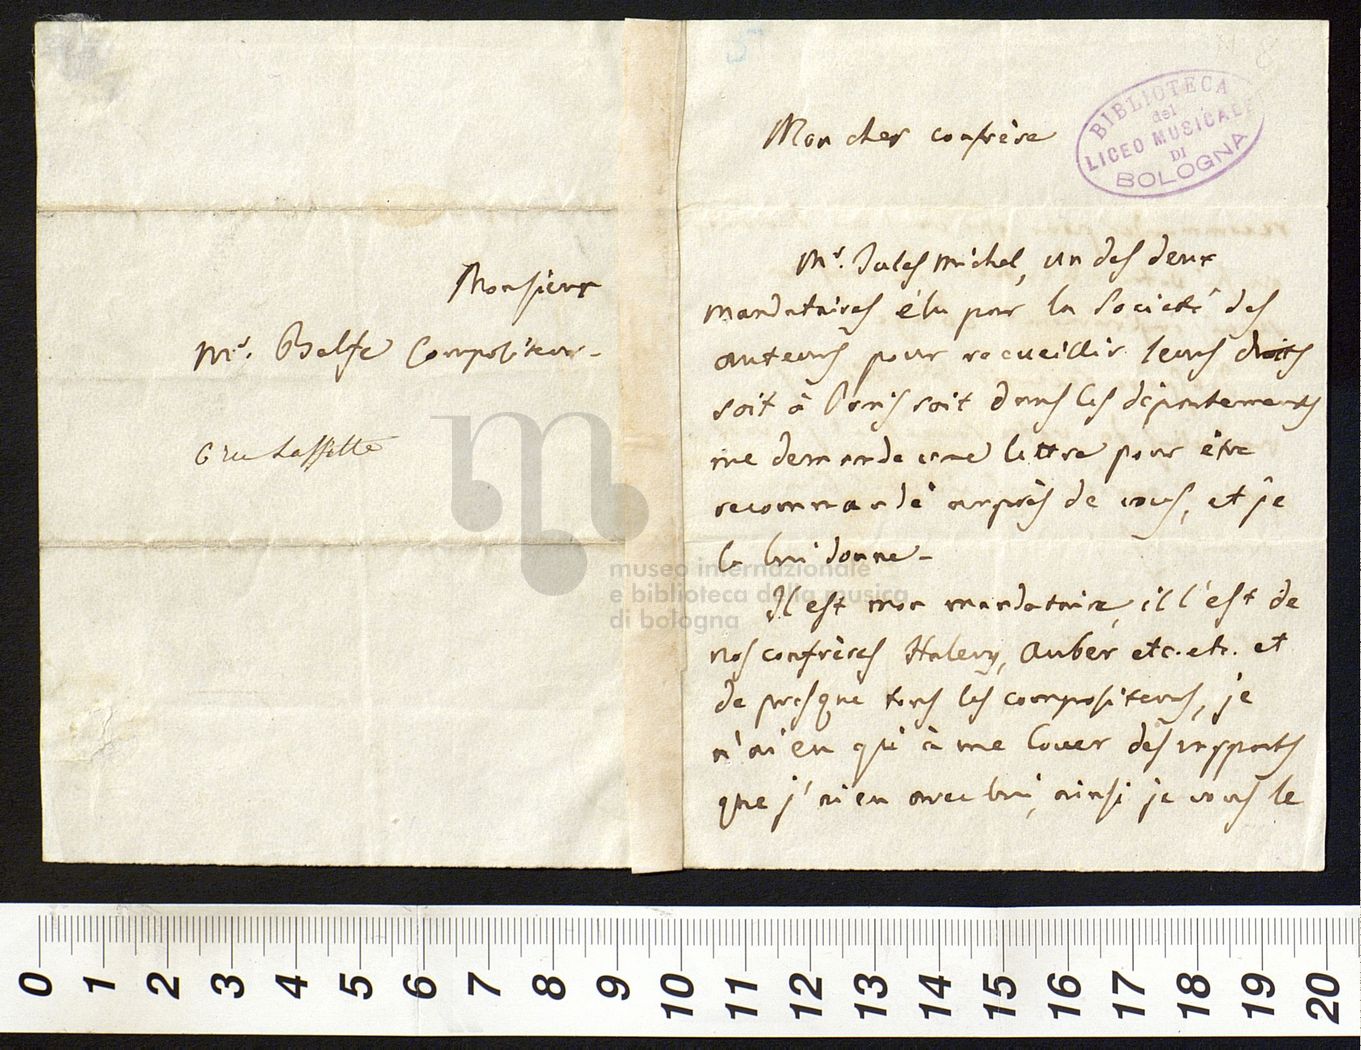 Monsieur
Mr. Balfe Compositeur -
6 rue Laffitte
Mon cher confrère
BIBLIOTECA
del
LICEO MUSICALE
DI
BOLOGNA
Mr. Jules Michel, un des deux
mandataires élu par la Société des
auteurs pour recueillir leurs droits
soit à Paris soit dans les départements
me demande une lettre pour être
recommandé auprès de vous, et je
la lui donne -
Il est mon mandataire, il l'est de
nos confrères Halevy, Auber etc. etc. et
de presque tous les compositeurs, je
n'ai eu qu'à me louer des rapports
que j'ai eu avec lui, ainsi je vous le
museo internazionale
e biblioteca della musica
di bologna
0 1 2 3 4 5 6 7 8 9 10 11 12 13 14 15 16 17 18 19 20